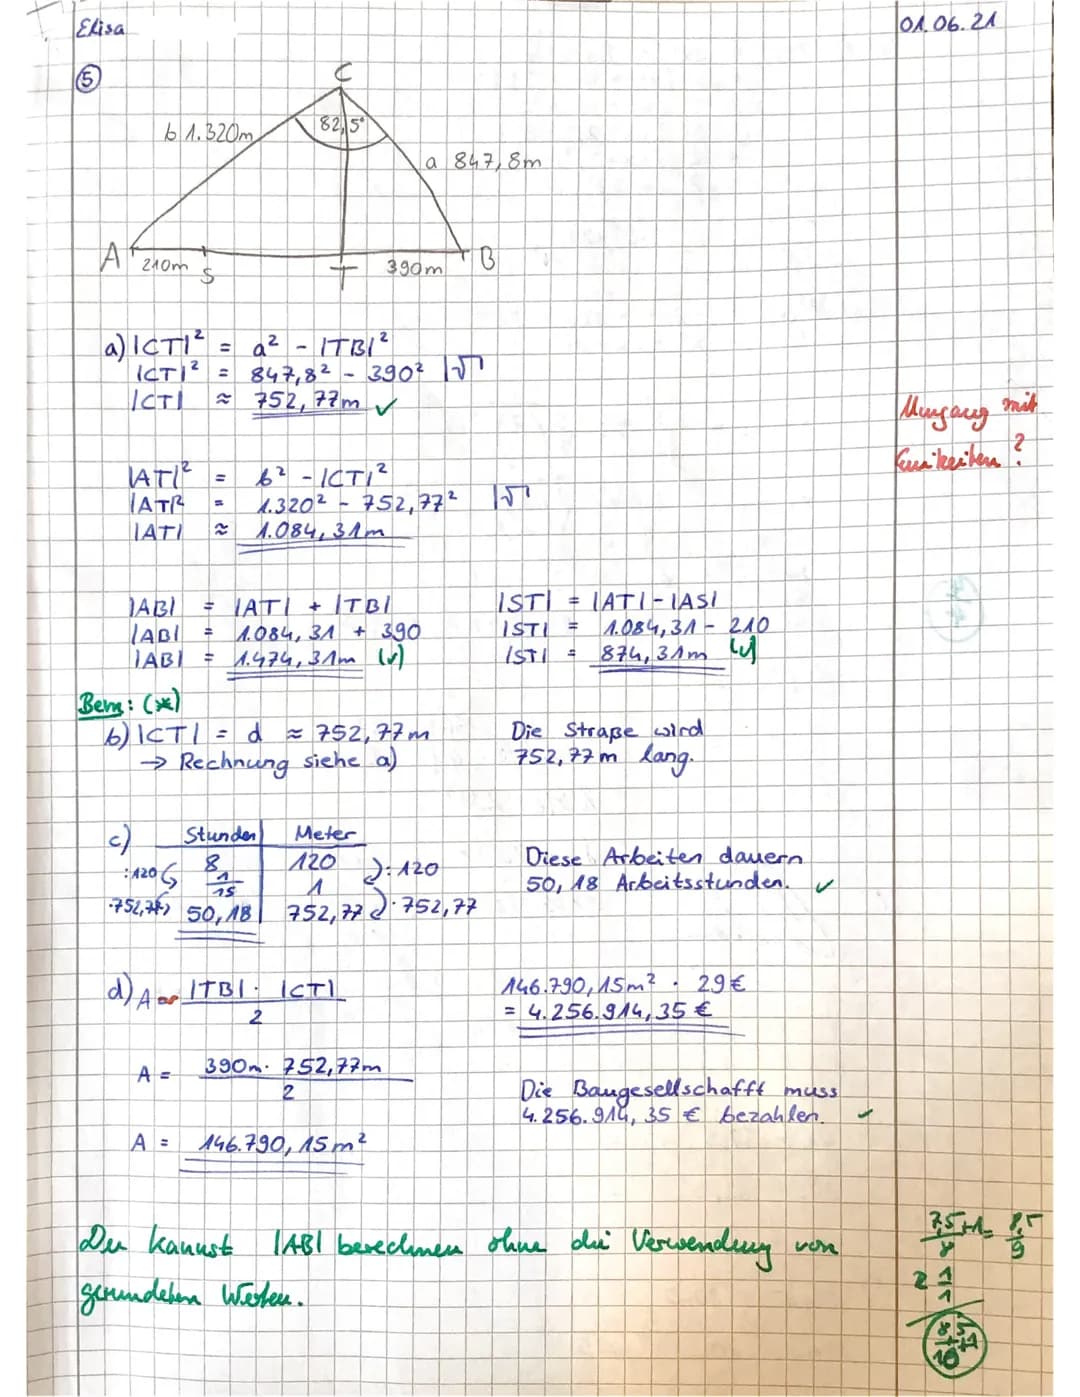 Elisa
01.06.21
5
C
b 1.320m
82,5°
a 847,8m
A
210m
S
T
390m
B
a) |CT|² = a² - |TB|²
|CT|² = 847,8² - 390² |√
|CT| ≈ 752,77m ✓
Umgang mit
Einheiten?
|AT|² = b² - |CT|²
|AT|² = 1.320² - 752,77² |√
|AT| ≈ 1.084,31m
|AB| = |AT| + |TB|
|AB| = 1.084,31 + 390
|AB| = 1.474,31m (✓)
|ST| = |AT| - |AS|
|ST| = 1.084,31 - 210
|ST| = 874,31m (✓)
Bem: (*)
b) |CT| = d ≈ 752,77m
→ Rechnung siehe a)
Die Straße wird
752,77m lang.
c) Stunden Meter
:120 8 120 :120
1/15 1
·752,77 50,18 752,77 ·752,77
Diese Arbeiten dauern
50,18 Arbeitsstunden. ✓
d) A = |TB| · |CT|
2
A = 390m · 752,77m
2
A = 146.790,15m²
146.790,15m² · 29€
= 4.256.914,35 €
Die Baugesellschafft muss
4.256.914,35 € bezahlen. ✓
Du kannst |AB| berechnen ohne die Verwendung von
gerundeten Werten.
7,5+1= 8,5
8 9
2 1/1
10